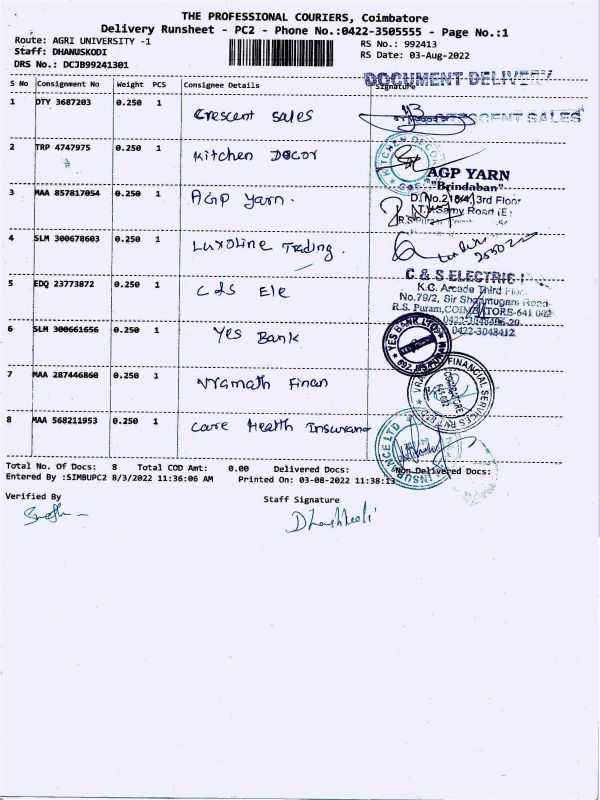 THE PROFESSIONAL COURIERS, Coimbatore
Delivery Runsheet - PC2 - Phone No.:0422-3505555 - Page No.:1
Route: AGRI UNIVERSITY -1
RS No.: 992413
Staff: DHANUSKODI
RS Date: 03-Aug-2022
DRS No.: DCJB99241301
DOCUMENT DELIVERY
S No Consignment No Weight PCS Consignee Details Signature
1 DTY 3687203 0.250 1 Crescent Sales
CRESCENT SALES
2 TRP 4747975 0.250 1 Kitchen Decor
KITCHEN DECOR
AGP YARN
"Brindaban"
3 MAA 857817054 0.250 1 AGP Yarn.
D.No.218/4, 3rd Floor
T.V.Samy Road (E)
4 SLM 300678603 0.250 1 Luxoline Trading.
C & S ELECTRIC
5 EDQ 23773872 0.250 1 C&S Ele
K.G. Arcade Third Floor
No.79/2, Sir Shanmugam Road
R.S. Puram, COIMBATORE-641 002
0422-3048412
6 SLM 300661656 0.250 1 Yes Bank
YES BANK LTD
7 MAA 287446860 0.250 1 Vramath Finan
FINANCIAL SERVICES PVT LTD
COIMBATORE
8 MAA 568211953 0.250 1 Care Health Insurance
INSURANCE LTD
Total No. Of Docs: 8 Total COD Amt: 0.00 Delivered Docs: Non Delivered Docs:
Entered By :SIMBUPC2 8/3/2022 11:36:06 AM Printed On: 03-08-2022 11:38:13
Verified By
Staff Signature